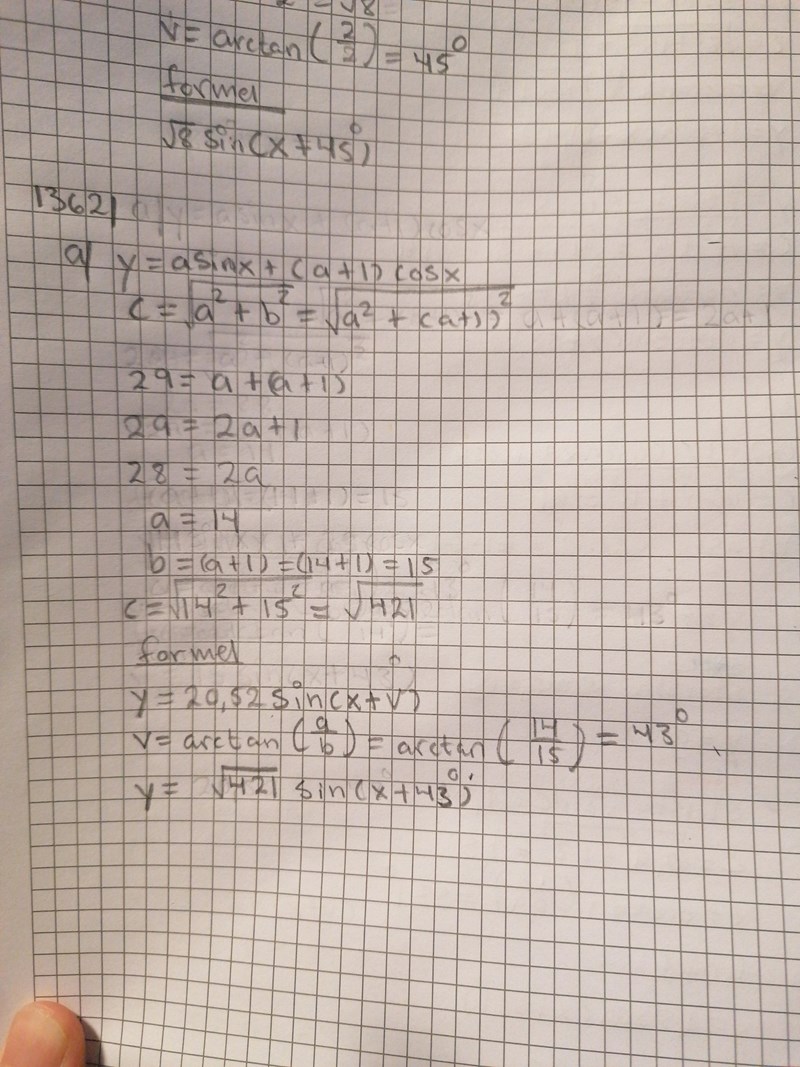 √8
v = arctan(2/2) = 45°
formel
√8 sin(x+45°)
1362)
a) y = a sinx + (a+1) cosx
c = √(a² + b²) = √(a² + (a+1)²)
29 = a + (a+1)
29 = 2a+1
28 = 2a
a = 14
b = (a+1) = (14+1) = 15
c = √(14² + 15²) = √421
formel
y = 20,52 sin(x+v)
v = arctan(a/b) = arctan(14/15) = 43°
y = √421 sin(x+43°)